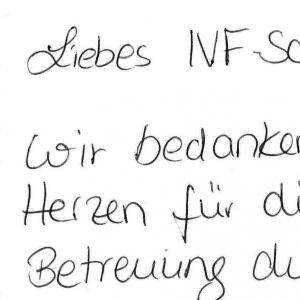 Liebes IVF-Sc
wir bedanken
Herzen für di
Betreuung du